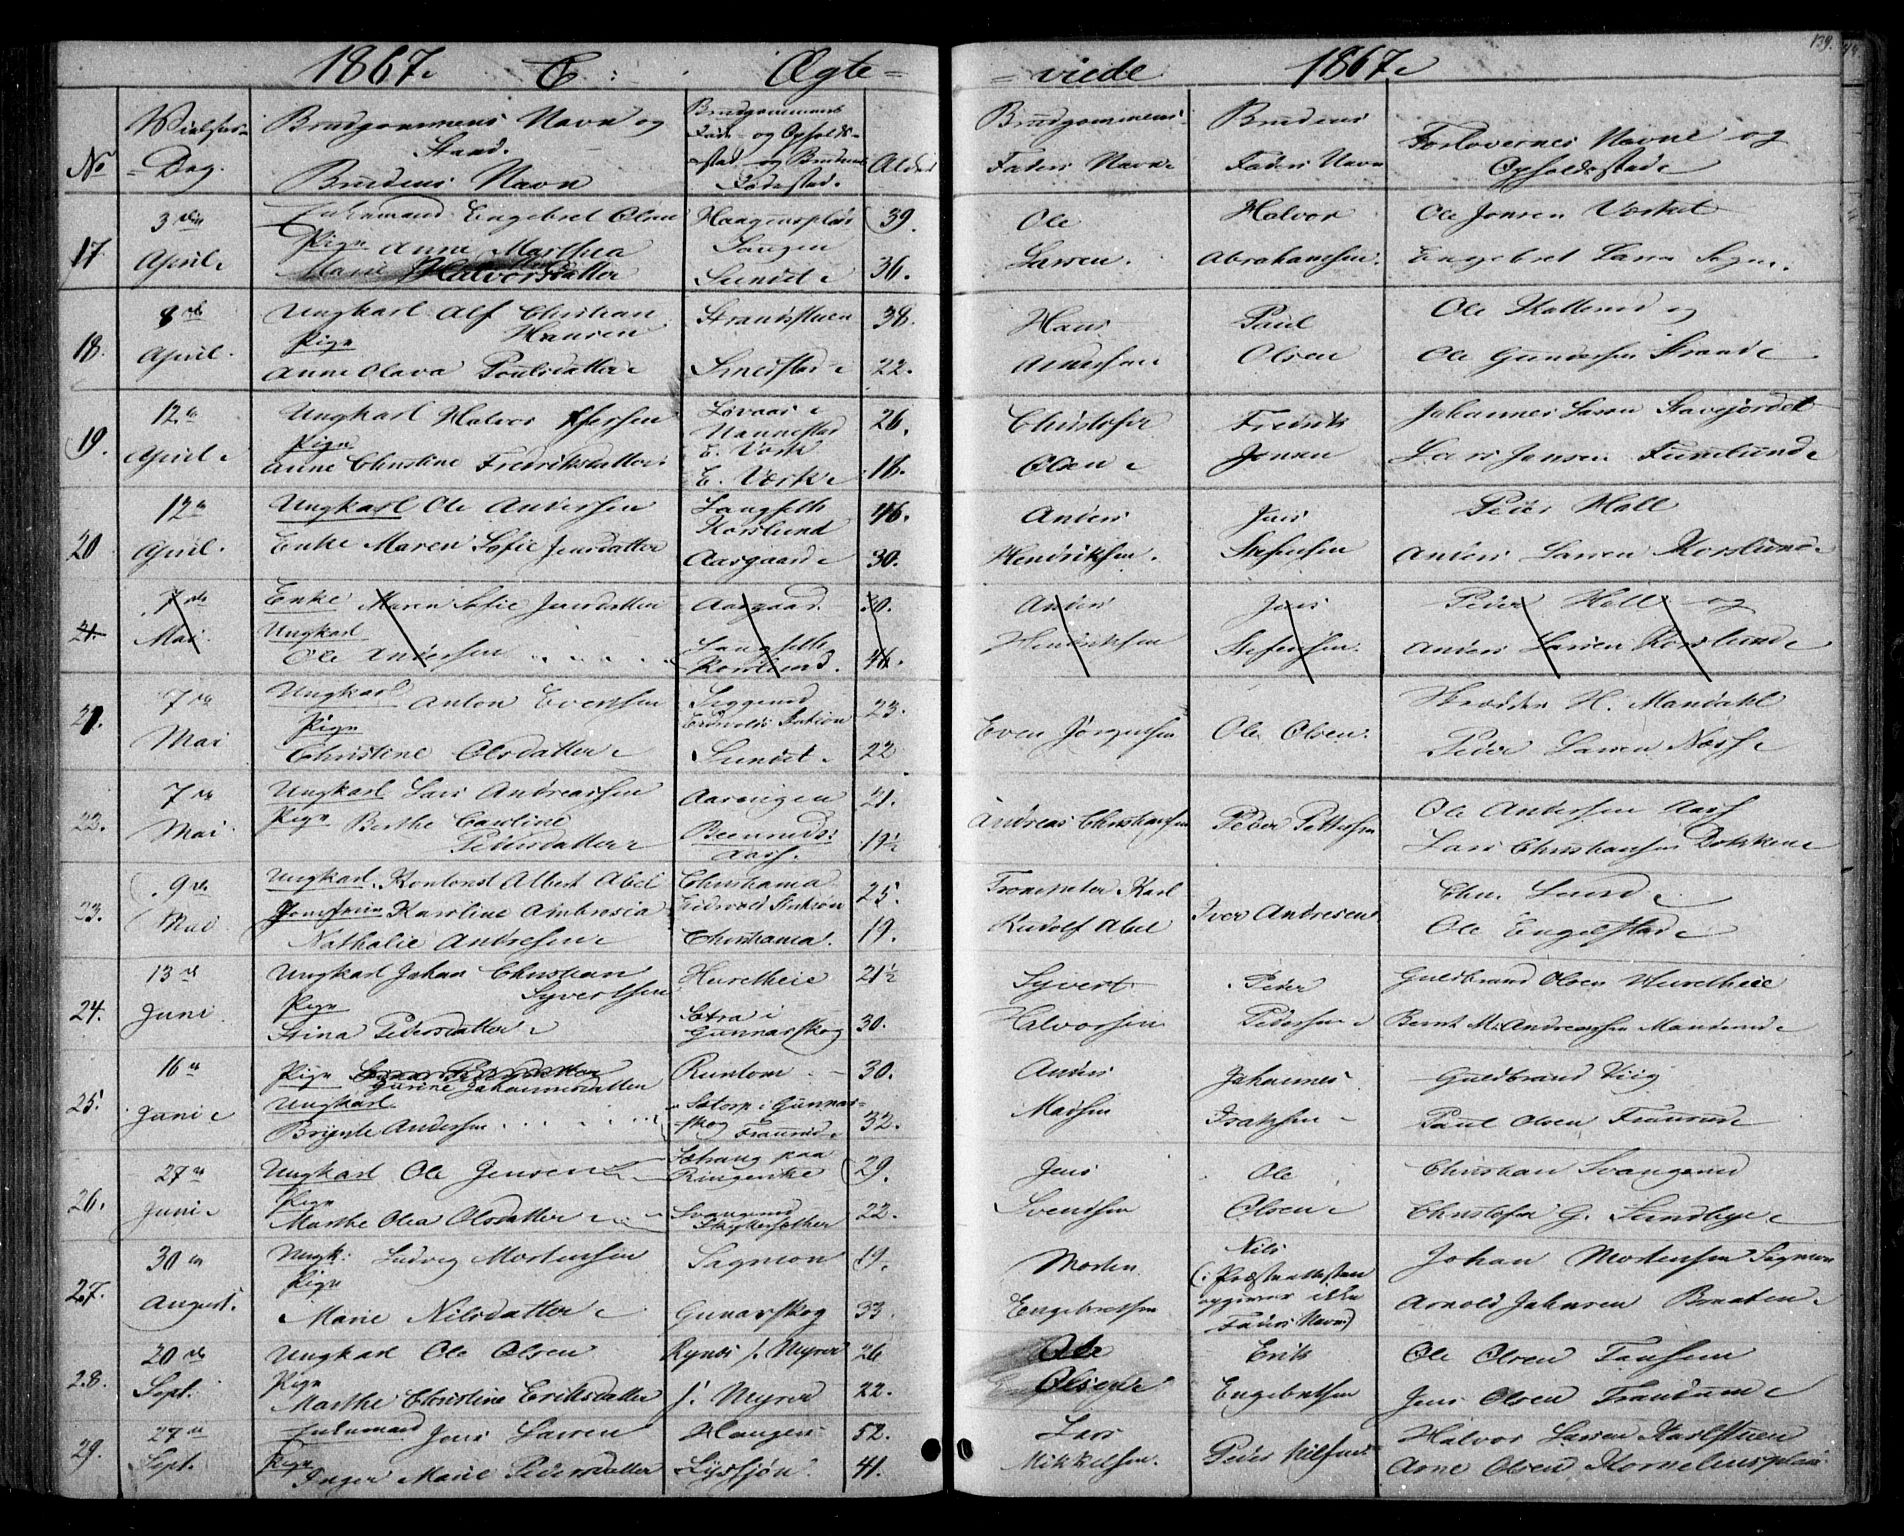 1867. C: Ægte-
=viede 1867.
139.
No
Vielses-
Dag.
Brudgommens Navn og
Stand.
Brudens Navn
Brudgommens
Føde- og Opholds-
stad og Brudens
Fødestad.
Alder
Brudgommens
Faders Navn
Brudens
Faders Navn
Forlovernes Navne og
Opholdsstad
17. 3die April
Enkemand Engebret Olsen
Pige Anne Marthea
Marie Halvorsdatter
Haagensplads
Sundet
39.
36.
Ole
Larsen.
Halvor
Abrahamsen.
Ole Jensen
Engebret Larsen
18. 8de April.
Ungkarl Alf Christian
Hansen
Pige
Anne Olava Poulsdatter
Strandstuen
Smedstad
38.
22.
Hans
Paul
Olsen
Ole
og
Ole Gundersen Strand
19. 12te April
Ungkarl Halvor
Pige
Anne Christine Fredriksdatter
Nannestad
E. Værk
E. Værk
26.
18.
Christofer
Olsen
Fredrik
Jensen
Johannes Larsen
Lars Jensen
20 12te April.
Ungkarl Ole Andersen
Enke Maren Sofie Jensdatter
Langseth
Korslund
Aasgaard
46.
30.
Anders
Hendriksen.
Jens
Stefensen
Peder Holl
Anders Larsen Korslund
21. 7de Mai.
Enke Maren Sofie Jensdatter
Ungkarl
Ole Andersen
Aasgaard.
Langseth
Korslund.
30.
46.
Anders
Hendriksen
Jens
Stefensen.
Peder Holl og
Anders Larsen Korslund
21. 7de Mai
Ungkarl Anton Evensen
Pige
Christine Olsdatter
Eidsvold Station
Sundet
23.
22
Even Jørgensen
Ole Olsen.
Skrædder H. Mandahl
Peder Larsen Næss
22. 7de Mai.
Ungkarl Lars Andreassen
Pige Berthe Caroline
Pedersdatter
21.
19½
Andreas Christiansen
Peder Pettersen
Ole Andersen Aas
Lars Christiansen Dokken
23. 9de Mai
Ungkarl. Kontorist Albert Abel
Jomfru Karoline Ambrosia
Nathalie Andresen
Christiania
Eidsvold Station
Christiania.
25.
19.
Trompeter Karl
Rudolf Abel
Iver Andresen
Chr. Lund
Ole Engelstad
24. 13de Juni.
Ungkarl Johan Christian
Syvertsen
Pige
Stina Pedersdatter
Hureheie
Sætra i
Gunnarskog
21½
30.
Syvert
Halvorsen
Peder
Pedersen
Guldbrand Olsen Hureheie
Bernt M. Andreassen
25. 16de Juni
Pige
Gurine Johannesdatter
Ungkarl
Brynte Andersen
Runtom
i Gunnar-
skog
30.
32.
Anders
Madsen
Johannes
Isaksen
Guldbrand Viig
Paul Olsen
26. 27de Juni
Ungkarl Ole Jensen
Pige
Marthe Olea Olsdatter
paa
Ringerike
Svangerud
29.
22.
Jens
Svendsen
Ole
Olsen
Christian Svangerud
Christofer G. Sundbye
27. 30te August.
Ungk: Ludvig Mortensen
Pige
Marie Nilsdatter
Sagmoen
Gunarskog
19.
33.
Morten
Engebretsen
Nils
(: Præsteattesten
opgiver ikke
Faders Navn)
Johan Mortensen Sagmoen
Arnold Johnsen Braaten
28. 20de Sept.
Ungkarl Ole Olsen
Pige
Marthe Christine Eriksdatter
26
22.
Ole
Olsen
Erik
Engebretsen
Ole Olsen
Jens Olsen
29. 27de Sept.
Enkemand Jens Larsen
Pige
Inger Marie Pedersdatter
Haugen
52.
41.
Lars
Mikkelsen.
Peder Nilsen
Halvor Larsen Karlstuen
Arne Olsen Korneliusplads